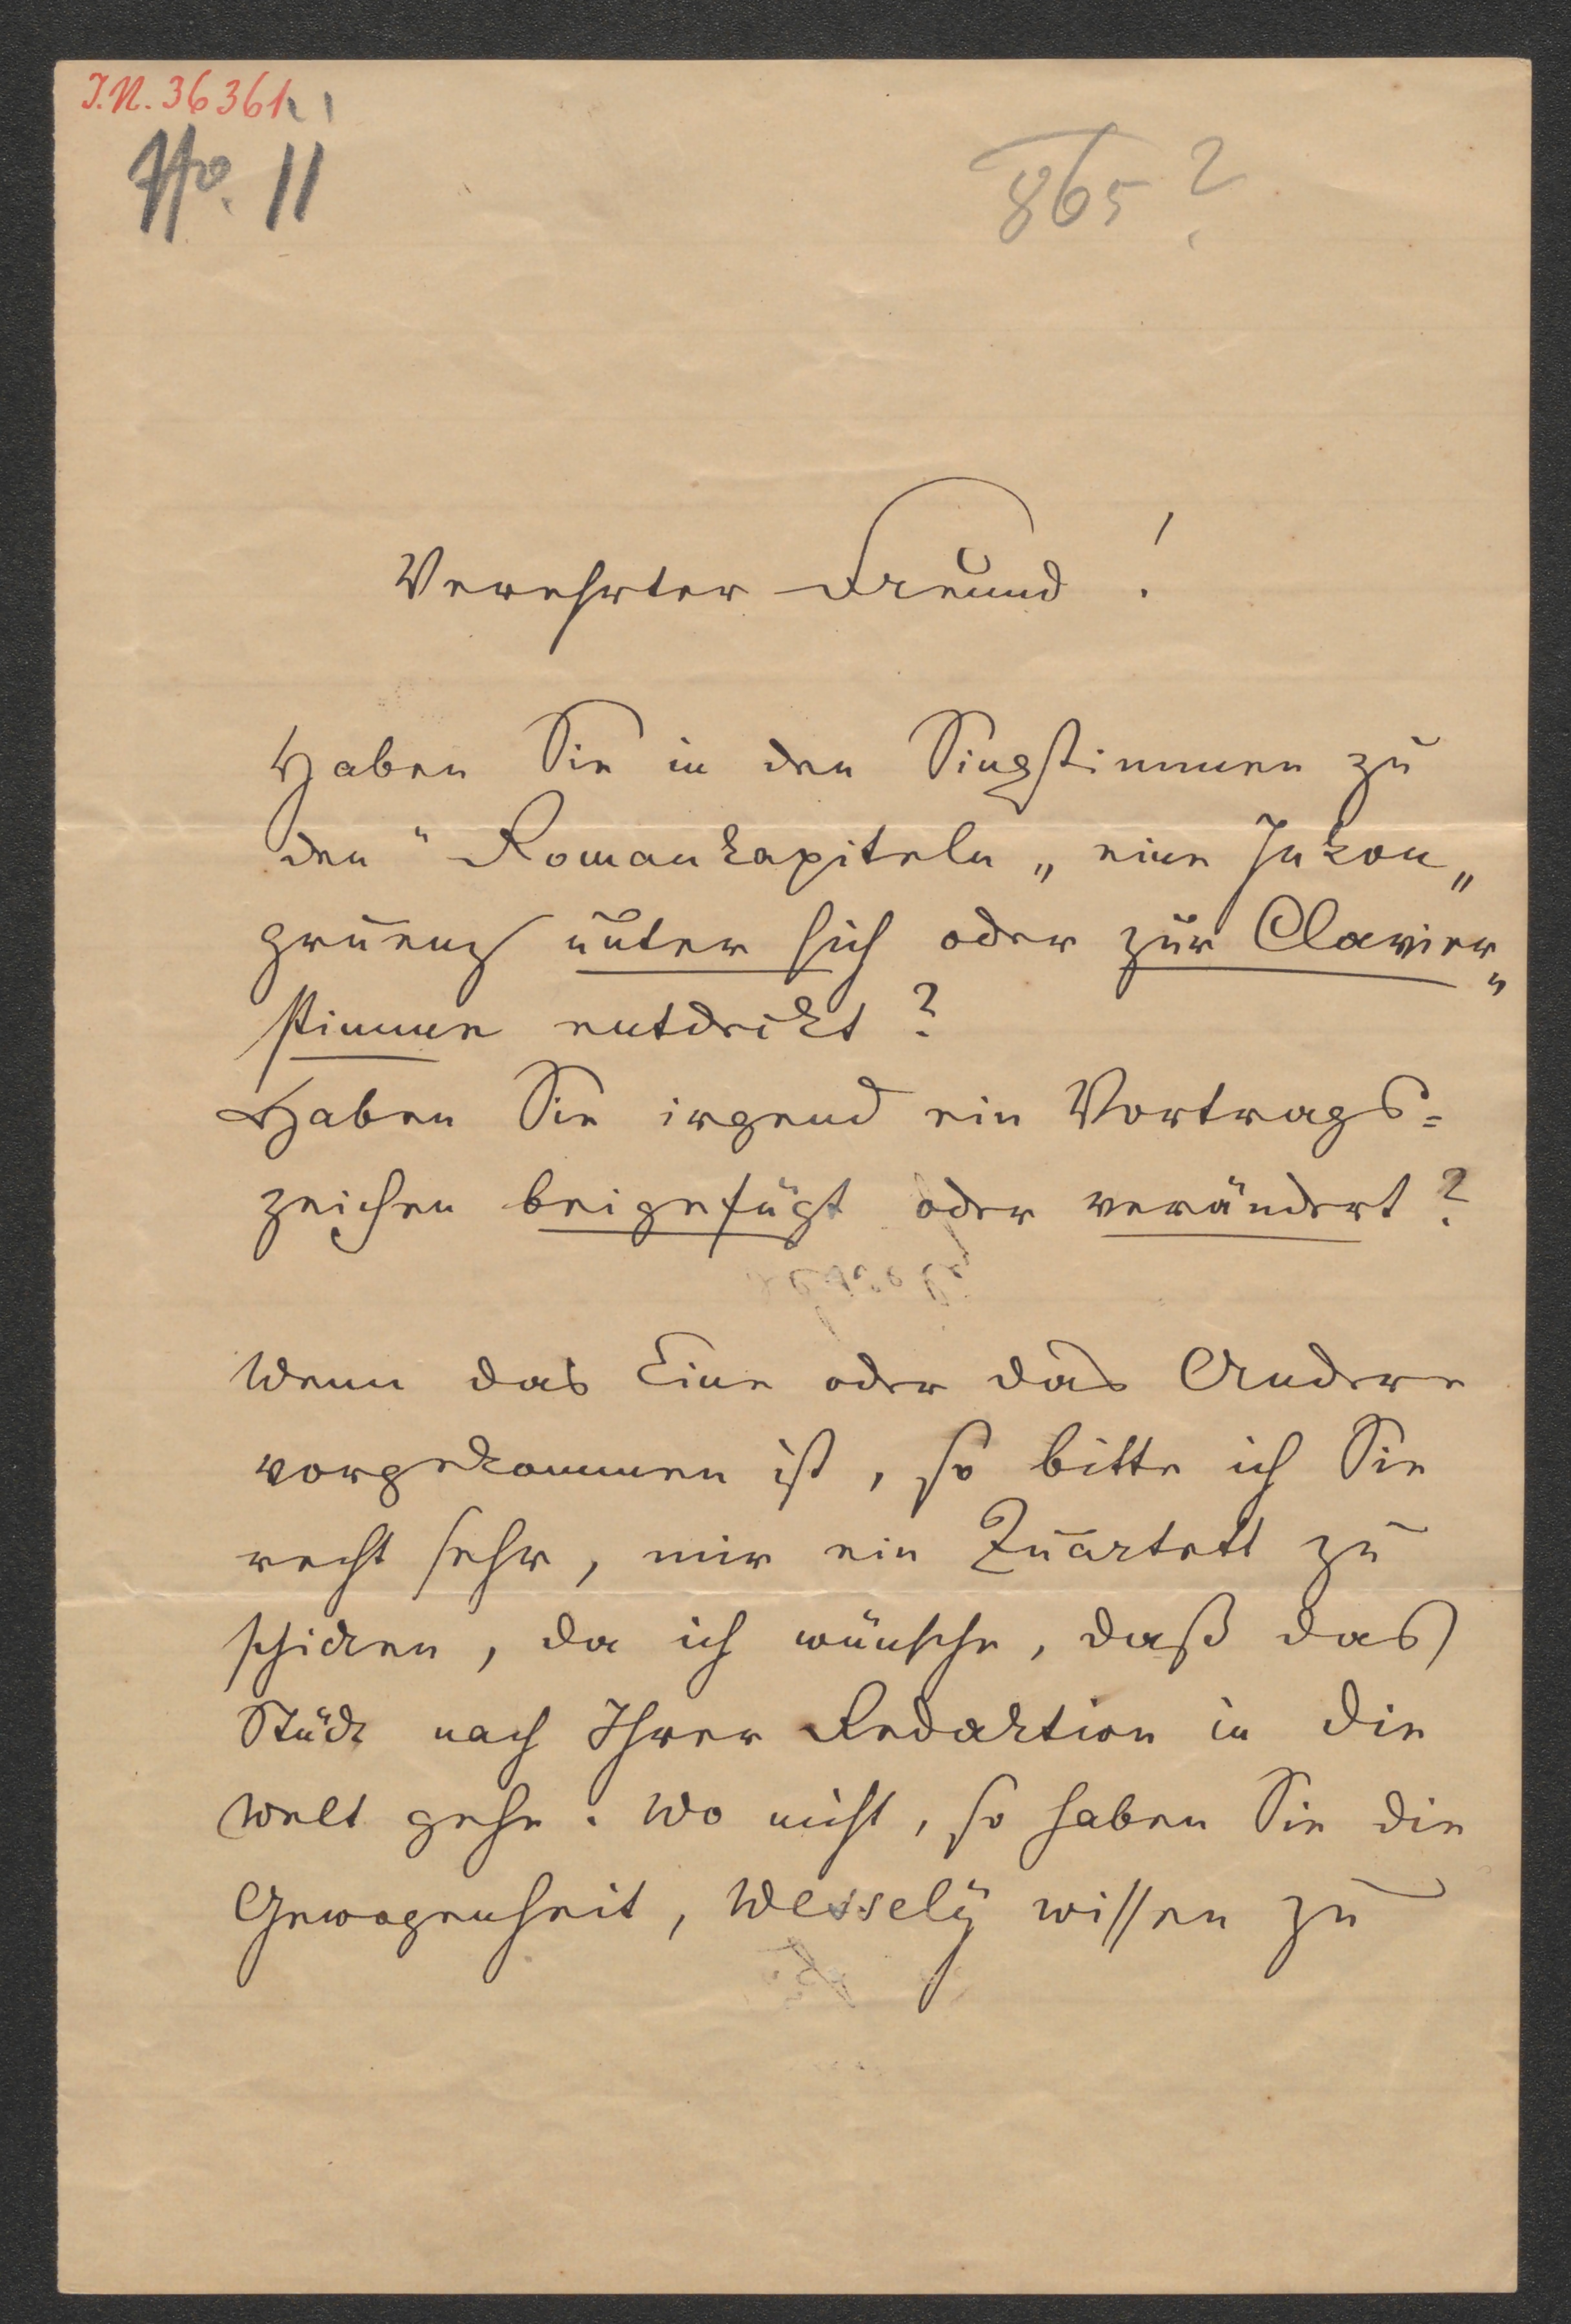 I.N. 36361
No. 11
865 ?
Verehrter Freund !
Haben Sie in den Singstimmen zu
den " Romankapiteln „ eine Inkon„
gruenz unter sich oder zur Clavier„
stimme entdekt ?
Haben Sie irgend ein Vortrags=
zeichen beigefügt oder verändert ?
Wenn das Eine oder das Andere
vorgekommen ist, so bitte ich Sie
recht sehr, mir ein Quartett zu
schicken, da ich wünsche, daß das
Stück nach Ihrer Redaktion in die
Welt gehe. Wo nicht, so haben Sie die
Gewogenheit, Wessely wissen zu